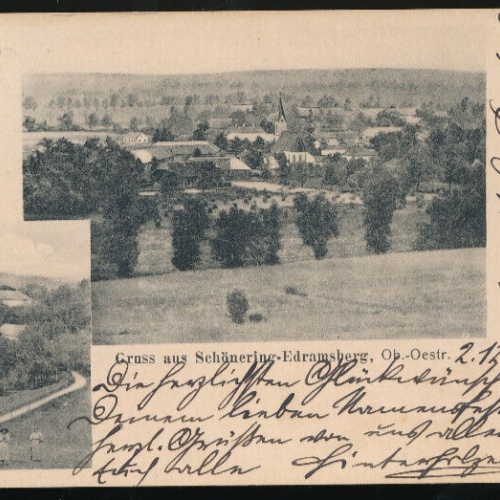 Gruss aus Schönering-Edramsberg, Ob.-Oestr. 2.12
Die herzlichsten Glückwünsche
Deinem lieben Namensfeste
herzl. Grüßen von uns allen
Euch alle